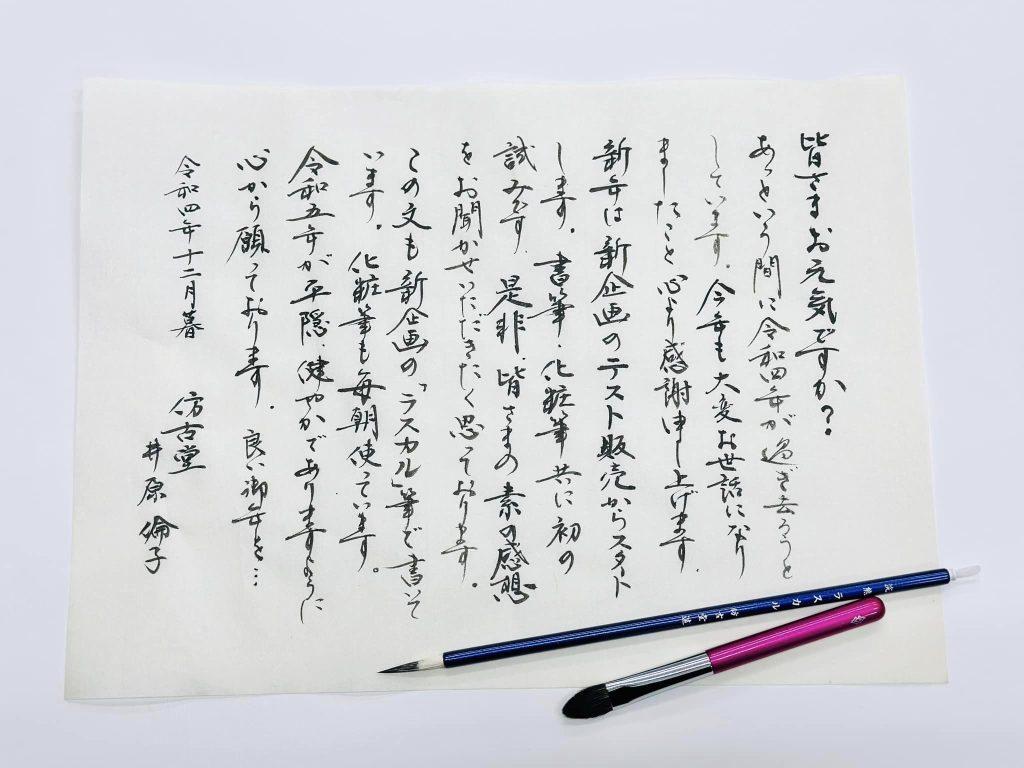 皆さまお元気ですか?
あっという間に令和四年が過ぎ去ろうと
しています。今年も大変お世話になり
ましたこと心より感謝申し上げます。
新年は新企画のテスト販売からスタート
します。書筆・化粧筆共に初の
試みです。是非、皆さまの素の感想
をお聞かせいただきたく思っております。
この文も新企画の「ラスカル」筆で書いて
います。化粧筆も毎朝使っています。
令和五年が平隠、健やかでありますように
心から願っております。良い御年を…
令和四年十二月暮
仿古堂
井原倫子
ラスカル 仿古堂